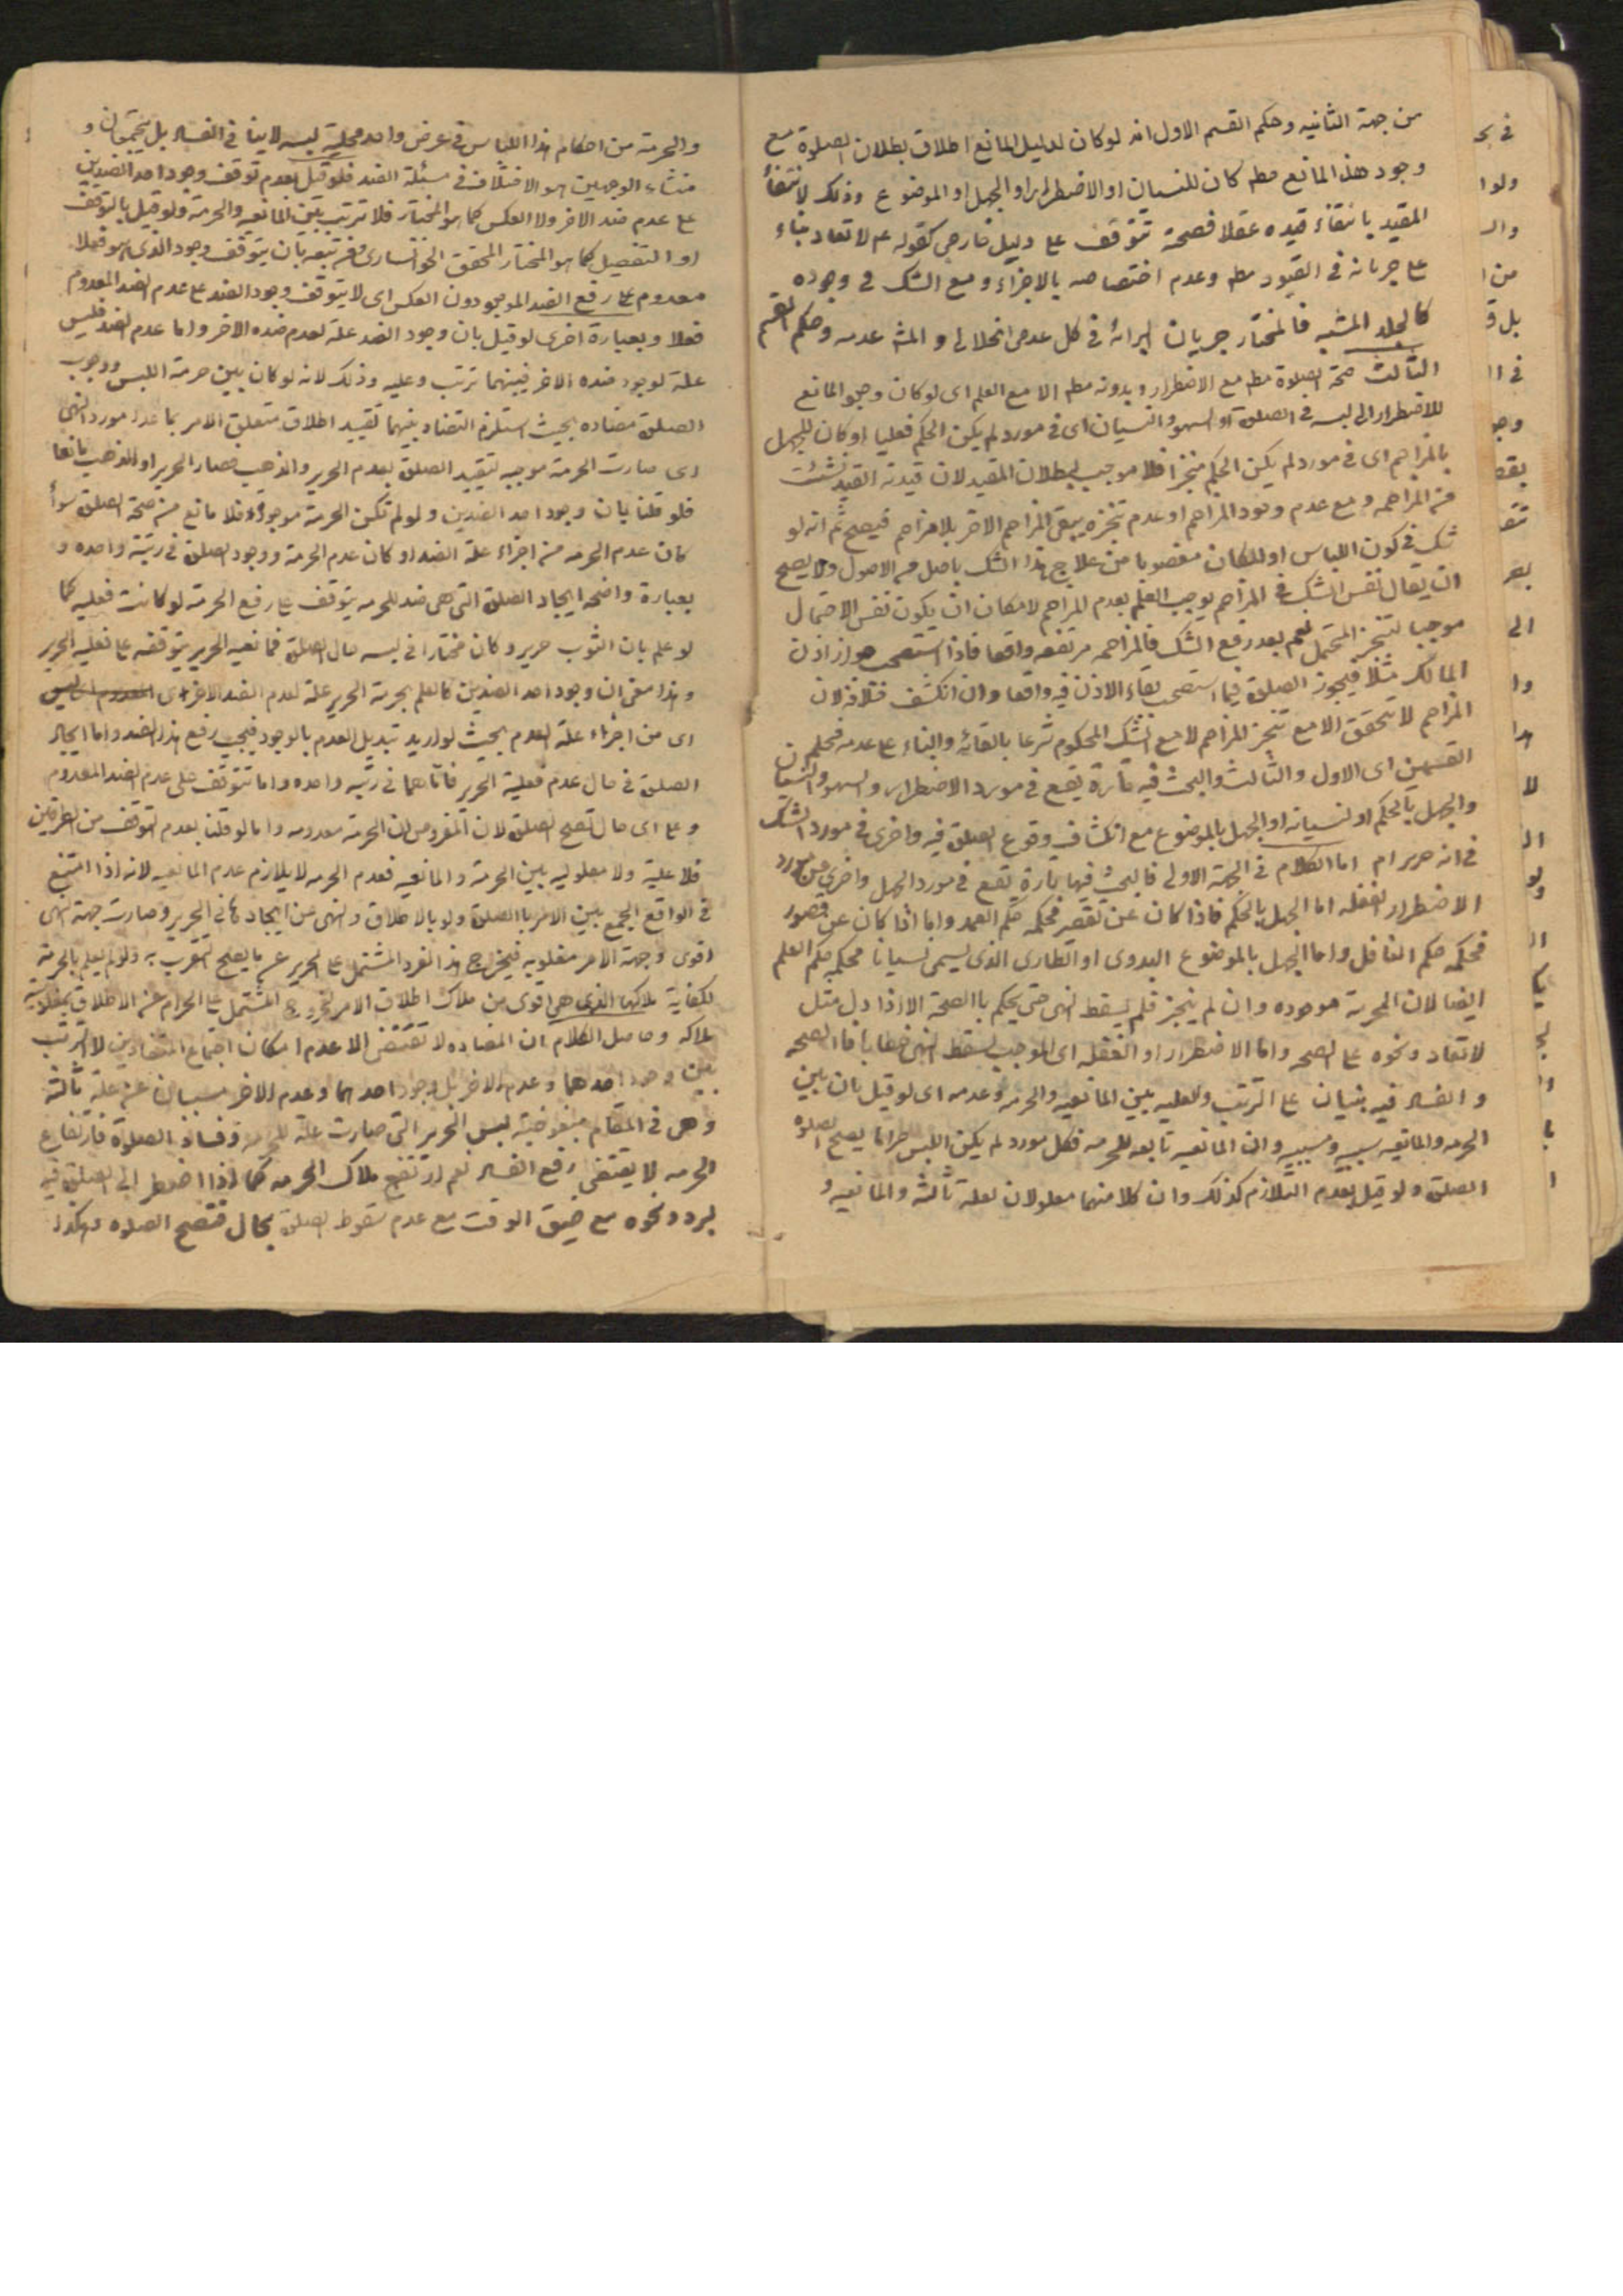 من جهة الثانيه وحكم القسم الاول انه لو كان لدليل المانع اطلاق بطلان الصلوة مع
وجود هذا المانع مطم كان للنسيان او الاضطرار او الجهل او الموضوع وذلك لانتفاء
المقيد بانتفاء قيده عقلا فصحة تتوقف على دليل خارجى كقوله ع لا تعاد بناء
على جريانه فى القيود مطم وعدم اختصاصه بالاجزاء ومع الشك فى وجوده
كالجلد المشتبه فالمختار جريان البرائة فى كل عدمى انحلالى و عدمه وحكم القسم
الثالث صحة الصلوة مطم مع الاضطرار وبدونه مطم الا مع العلم اى لو كان وجود المانع
للاضطرار الى لبسه فى الصلوة او السهو والنسيان اى فى مورد لم يكن الحكم فعليا او كان للجهل
بالمزاحم اى فى مورد لم يكن الحكم منجزا فلا موجب لبطلان المقيد لان قيدية القيد نشئت
من المزاحمه ومع عدم وجود المزاحم او عدم تنجزه يبقى المزاحم الاخر بلا مزاحم فيصح ثم انه لو
شك فى كون اللباس او المكان مغصوبا من علاج هذا الشك باصل من الاصول ولا يصح
ان يقال نفس الشك فى المزاحم يوجب العلم بعدم المزاحم لامكان ان يكون نفس الاحتمال
موجبا لتنجز المحتمل نعم بعد رفع الشك فالمزاحمه مرتفعه واقعا فاذا استصحب جواز اذن
المالك مثلا فيجوز الصلوة فيما استصحب بقاء الاذن فيه واقعا وان انكشف خلافه لان
المزاحم لا تحقق الا مع تنجز المزاحم لا مع الشك المحكوم شرعا بالقائه والبناء على عدمه فحكم
القسمين اى الاول والثالث والبحث فيه تارة يقع فى مورد الاضطرار والسهو والنسيان
والجهل بالحكم او نسيانه او الجهل بالموضوع مع انكشاف وقوع الصلوة فيه واخرى فى مورد الشك
فى انه حرير ام اما الكلام فى الجهة الاولى فالبحث فيها تارة تقع فى مورد الجهل واخرى عن مورد
الاضطرار الغفله اما الجهل بالحكم فاذا كان عن تقصير فحكمه حكم العمد واما اذا كان عن قصور
فحكمه حكم الغافل واما الجهل بالموضوع البدوى او الطارى الذى يسمى نسيانا فحكمه حكم العلم
ايضا لان الحرمة موجوده وان لم يتنجز فلم يسقط النهى حتى يحكم بالصحة الا اذا دل مثل
لا تعاد ونحوه على الصحه واما الاضطرار او الغفله اى الموجب لسقط النهى خطابا فالصحه
والفساد فيه بنيان على الترتب والعليه بين المانعيه والحرمه وعدمه اى لو قيل بان بين
الحرمه والمانعيه سببيه ومسببيه وان المانعيه تابعه للحرمه فكل مورد لم يكن اللبس حراما يصح الصلوه
الصلوة ولو قيل بعدم التلازم كذلك وان كلا منهما معلولان لعلة ثالثة والمانعيه و
والحرمة من احكام هذا اللباس فى عرض واحد لبسه لا ينافى الفساد بل يجتمعان و
منشاء الوجهين هو الاختلاف فى مسئلة الضد فلو قيل بعدم توقف وجود احد الضدين
على عدم ضد الاخر ولا العكس كما هو المختار فلا ترتب بين المانعيه والحرمة ولو قيل بالتوقف
او التفصيل كما هو المختار المحقق الخوانسارى من تبعه بان يتوقف وجود الذى هو فعلا
معدوم على رفع الضد الموجود دون العكس اى لا يتوقف وجود الضد على عدم الضد المعدوم
فعلا وبعبارة اخرى لو قيل بان وجود الضد علة لعدم ضده الاخر واما عدم الضد فليس
علة لوجود ضده الاخر فبينهما ترتب وعليه وذلك لانه لو كان بين حرمة اللبس ووجوب
الصلوة مضاده بحيث استلزم التضاد بينهما تقييد اطلاق متعلق الامر بما عدا مورد النهى
اى صارت الحرمة موجبه لتقييد الصلوة بعدم الحرير والذهب فصار الحرير او الذهب مانعا
فلو قلنا بان وجود احد الضدين ولو لم تكن الحرمة موجودة فلا مانع من صحة الصلوة سواء
كان عدم الحرمه من اجزاء علة الضد او كان عدم الحرمة ووجود الصلوة فى رتبة واحده و
بعبارة واضحه ايجاد الصلوة التى هى ضد للحرمه يتوقف على رفع الحرمة لو كانت فعليه كما
لو علم بان الثوب حرير وكان مختارا فى لبسه حال الصلوة فمانعيه الحرير يتوقفه على فعليه الحرير
وهذا معنى ان وجود احد الضدين كالعلم بحرمة الحرير علة لعدم الضد الاخر اى
اى من اجزاء علة العدم بحيث لو اريد تبديل العدم بالوجود فيجب رفع هذا الضد واما ايجاد
الصلوة فى حال عدم فعلية الحرير فاما هما فى رتبه واحده واما تتوقف على عدم الضد المعدوم
وعلى اى حال تصح الصلوة لان المفروض ان الحرمة معدومه واما لو قلنا بعدم التوقف من الطرفين
فلا علية ولا معلوليه بين الحرمة والمانعيه فعدم الحرمه لا يلازم عدم المانعيه لانه اذا امتنع
فى الواقع الجمع بين الامر بالصلوة ولو بالاطلاق والنهى عن ايجاد فى الحرير وصارت جهة النهى
اقوى وجهة الامر مغلوبه فيخرج هذا الفرد المشتمل على الحرير عن ما يصح التقرب به ولو لم يعلم بالحرمة
لكفاية ملاكها الذى هى اقوى من ملاك اطلاق الامر لخروج المشتمل على الحرام من الاطلاق
ملاكه وحاصل الكلام ان المضاده لا تقتضى الا عدم امكان اجتماع المتضادين لا الترتب
بين وجود احدهما وعدم الاخر بل وجود احدهما وعدم الاخر مسببان عن علة ثالثة
وهى فى المقام مبغوضية لبس الحرير التى صارت علة للحرمة وفساد الصلوة فارتفاع
الحرمه لا يقتضى رفع الفساد نعم لو ارتفع ملاك الحرمه كما اذا اضطر الى الصلوة فيه
لبرد ونحوه مع ضيق الوقت مع عدم سقوط الصلوة بحال فتصح الصلوه وهكذا